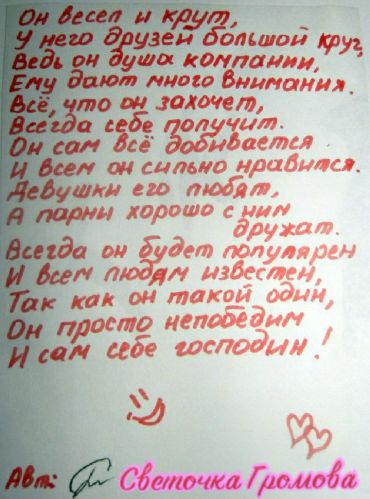 Он весел и крут,
У него друзей большой круг,
Ведь он душа компании,
Ему дают много внимания.
Всё, что он захочет,
Всегда себе получит.
Он сам всё добивается
И всем он сильно нравится.
Девушки его любят,
А парни хорошо с ним
дружат.
Всегда он будет популярен
И всем людям известен,
Так как он такой один,
Он просто непобедим
И сам себе господин!
Авт: Светочка Громова